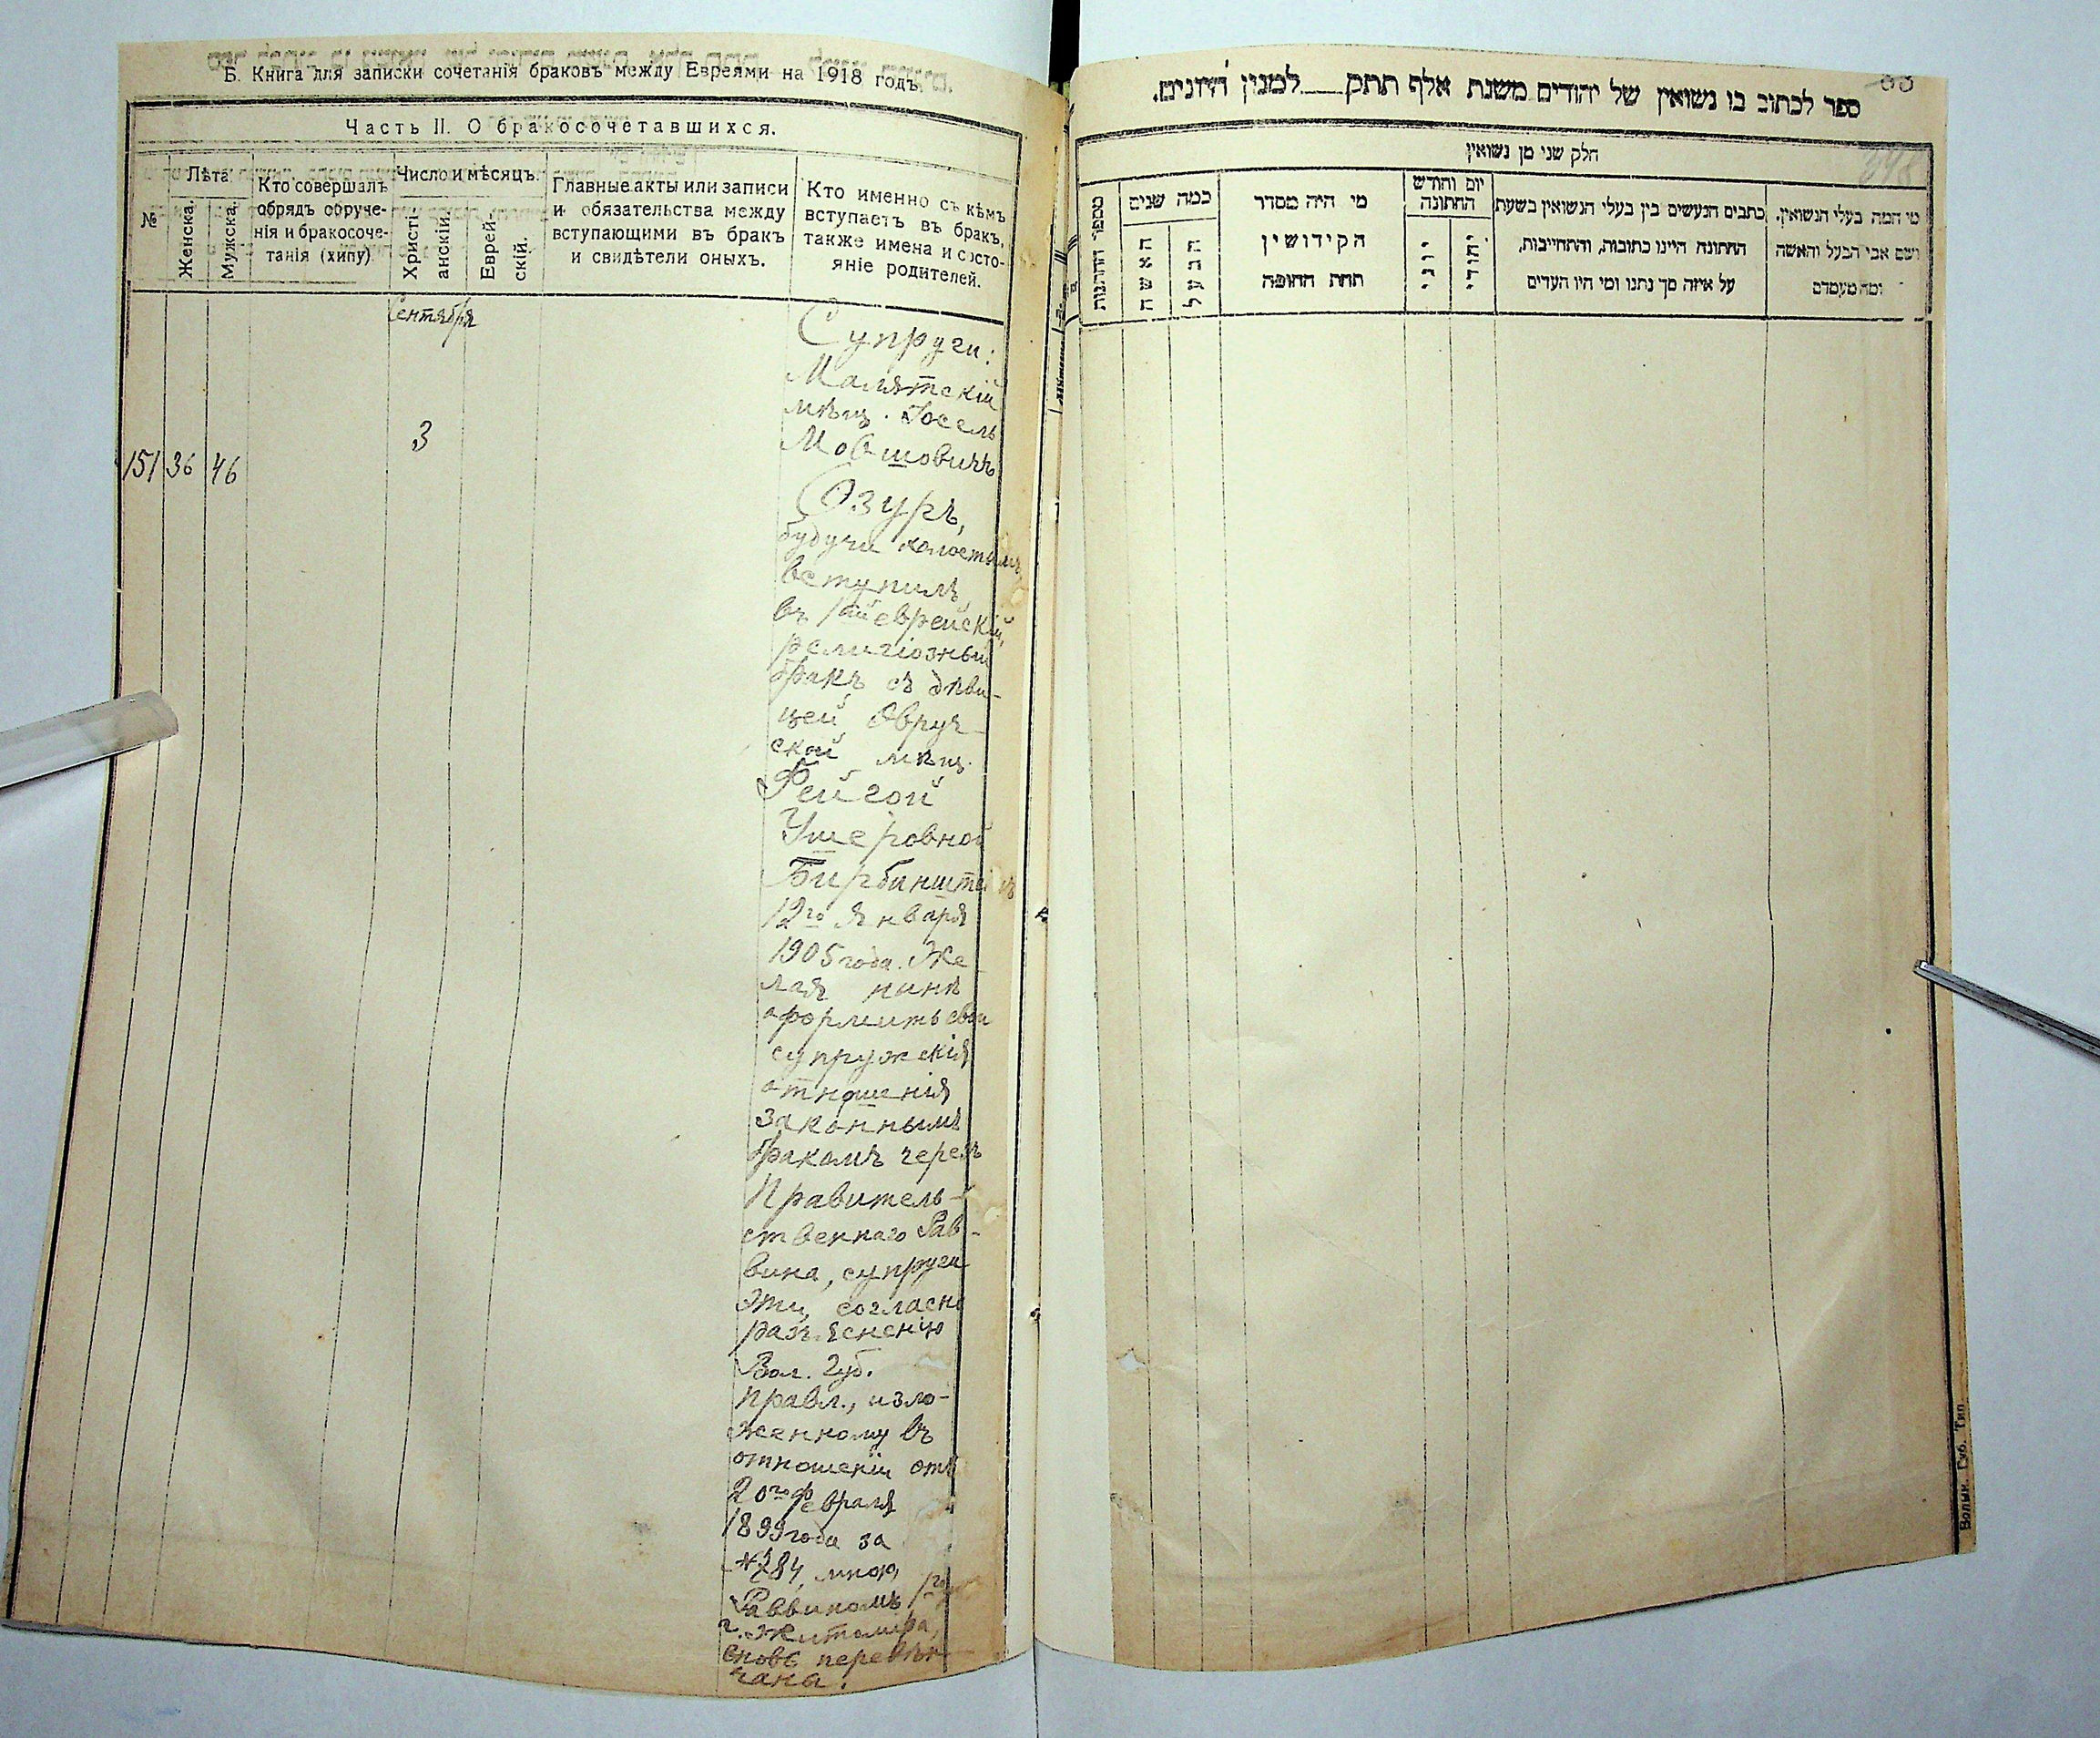 Б. Книга для записки сочетанія браковъ между Евреями на 1918 годъ.
Часть II. О бракосочетавшихся.
№
Лѣта
Женска.
Мужска.
Кто совершалъ
обрядъ обруче-
нія и бракосоче-
танія (хипу)
Число и мѣсяцъ.
Христі-
анскій.
Еврей-
скій.
Главные акты или записи
и обязательства между
вступающими въ бракъ
и свидѣтели оныхъ.
Кто именно съ кѣмъ
вступаетъ въ бракъ,
также имена и состо-
яніе родителей.
Сентября
151 36 46
3
Супруги:
Малятскій
мѣщ. Іосель
Мовшовичъ
Озуръ,
будучи холостымъ,
вступилъ
въ 1ый еврейскій
религіозный
бракъ съ дѣви-
цей Овруч-
ской мѣщ.
Фейгой
Ушеровной
Бирбинштейнъ
12го Января
1905 года. Же-
лая нынѣ
оформить свои
супружскія
отношенія
законнымъ
бракомъ черезъ
Правитель-
ственнаго Рав-
вина, супруги
эти, согласно
разъясненію
Вол. Губ.
Правл., изло-
женному въ
отношеніи отъ
20го Февраля
1899 года за
№ 284, мною,
Раввиномъ
г. Житомира,
вновь перевѣн-
чаны.
ספר לכתוב בו נשואין של יהודים משנת אלף תתק___ למנין היונים.
חלק שני מן נשואין
מספר החתונות
כמה שנים
האשה
הבעל
מי היה מסדר
הקידושין
תחת החופה
יום וחודש
החתונה
יוני
יהודי
כתבים הנעשים בין בעלי הנשואין בשעת
החתונה היינו כתובות, והתחייבות,
על איזה סך נתנו ומי היו העדים
מי המה בעלי הנשואין,
ושם אבי הבעל והאשה
ומה מעמדם
Волын. Губ. Тип.